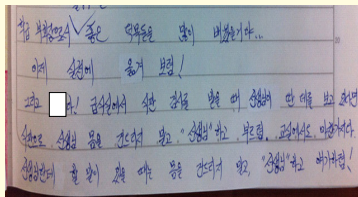 직접 부회장으로서 좋은 덕목들을 많이 배웠을거야..
이제 실천에 옮겨 보렴!
그리고 야! 급식실에서 식판 검사를 받을 때 선생님이 딴 데를 보고 있다면
손가락으로 선생님 몸을 건드리지 말고, "선생님"하고 부르렴. 교실에서도 마찬가지야.
선생님한테 할 말이 있을 때는 몸을 건드리지 말고, "선생님"하고 얘기하렴!